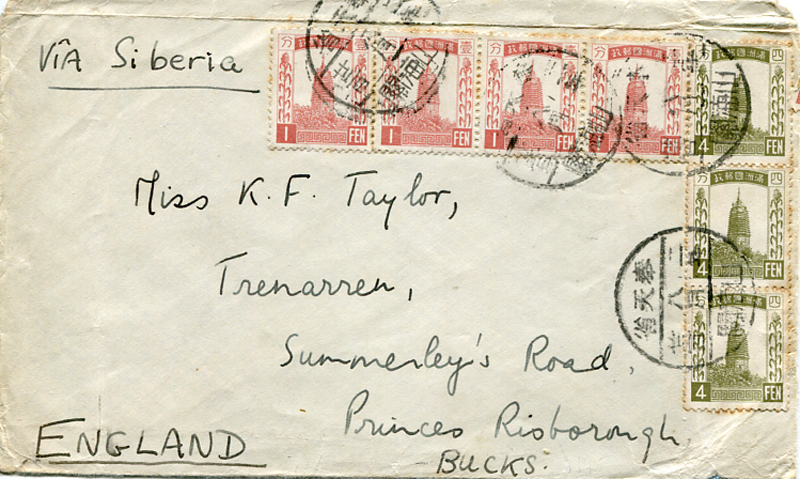 Viâ Siberia
政郵國洲滿
分 壹
1 FEN
政郵國洲滿
分 壹
1 FEN
政郵國洲滿
1 FEN
政郵國洲滿
1 FEN
政郵國洲滿
分 四
4 FEN
政郵國洲滿
分 四
4 FEN
政郵國洲滿
分 四
4 FEN
奉天省
Miss K. F. Taylor,
Trenarren,
Summerley's Road,
Princes Risborough,
BUCKS.
ENGLAND